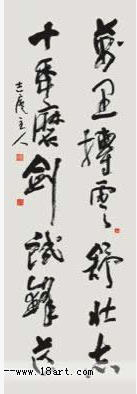 萬里搏雲舒壯志
十年磨劍試鋒芒
主人
www.18art.com